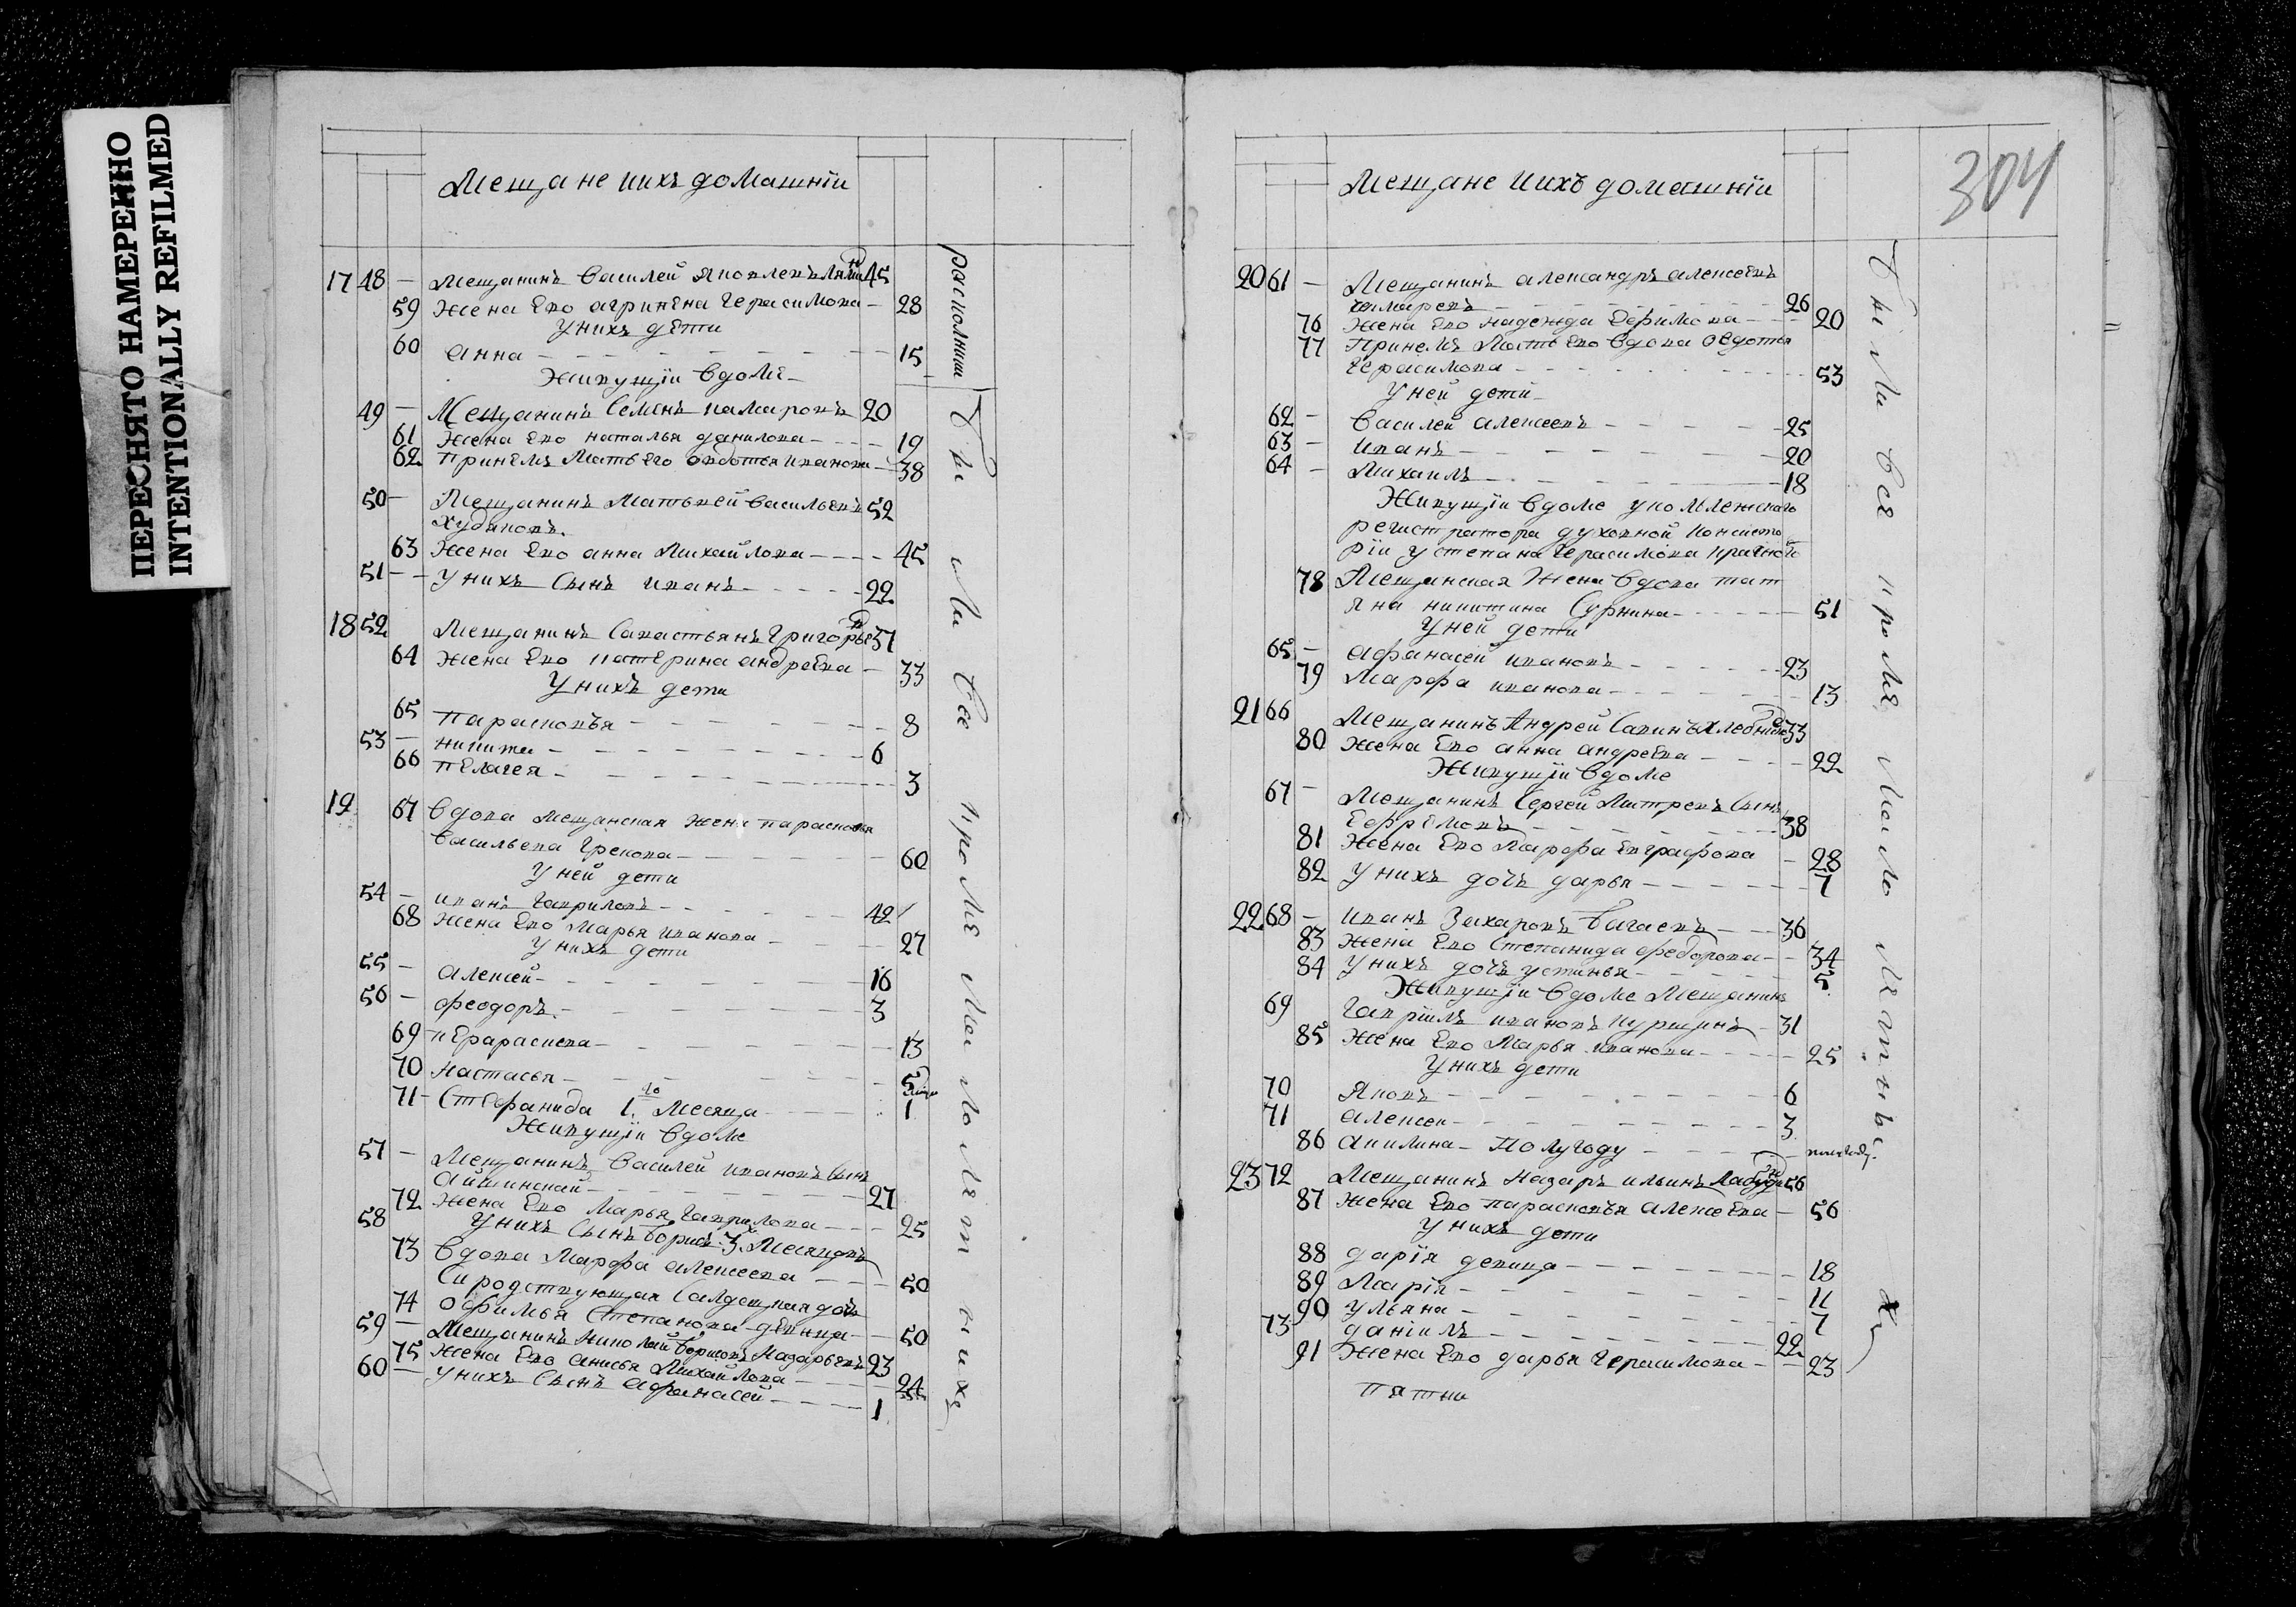 ПЕРЕСНЯТО НАМЕРЕННО
INTENTIONALLY REFILMED
Мещане иихъ домашнїи
17 48 – Мещанинъ Василей Яковлевъ 45
59 Жена Ево агринѣна Герасимова – 28
У нихъ дѣти
60 анна – 15
Живущїи вдомѣ
49 – Мещанинъ Семенъ камаровъ 20
61 Жена Ево наталья данилова – 19
62 принемъ Мать его овдотья иванова – 38
50 – Мещанинъ Матьвей васильевъ 52
Худяковъ.
63 Жена Ево анна Михайлова – 45
51 – У нихъ Сынъ иванъ – 22
18 52 Мещанинъ Савастьянъ Григорьев 37
64 Жена Ево катерина андревва – 33
У нихъ дети
65 парасковья – 8
53 – никита – 6
66 пелагея – 3
19 67 Вдова мещанская жена парасковья
васильева Грекова – 60
У ней дети
54 – иванъ Гавриловъ – 42
68 Жена Ево Марья иванова – 27
У нихъ дети
55 – алексей – 16
56 – феодоръ – 3
69 – 13
70 настасья – 5
71 – Стефанида 1.го Месяца – 1
Живущїи вдоме
57 – Мещанинъ Василей ивановъ Сынъ
27
72 Жена Ево Марья Гаврилова – 25
58 У нихъ Сынъ борисъ 3.х Месяцовъ
73 Вдова Марфа алексеева – 50
74 офимья Степанова девица – 50
59 – Мещанинъ николай борисовъ Назарьевъ 23
75 Жена Ево анисья Михайлова – 24
60 – У нихъ Сынъ афанасей – 1
расколники
Были все кроме мало летнихъ
304
Мещане иихъ домашнїи
20 61 – Мещанинъ александръ алексеевъ
камаревъ – 26
76 Жена Ево надежда Ефимова – 20
77 Принемъ Мать Ево вдова овдотья
Герасимова – 53
У ней дети
62 – Василей алексеевъ – 25
63 – иванъ – 20
64 – Михаилъ – 18
Живущїи вдоме у коллежскаго
регистратора духовной консисто
рїи у степана Герасимова
78 Мещанская Жена вдова тат
яна никитина Суркина – 51
У ней дети
65 – афанасей ивановъ – 23
79 Марфа иванова – 13
21 66 Мещанинъ Андрей Савинъ Хлебников 33
80 Жена Ево анна андреева – 22
Живущїи вдоме
67 – Мещанинъ Сергей Митревъ Сынъ
Ефремовъ – 38
81 Жена Ево Марфа Евграфова – 28
82 У нихъ дочь дарья – 7
22 68 – иванъ Захаровъ Багаевъ – 36
83 Жена Ево Степанида федорова – 34
84 У нихъ дочь устинья – 5
Живущїи вдоме Мещанинъ
69 Гаврїилъ ивановъ 31
85 Жена Ево Марья иванова – 25
У нихъ дети
70 Яковъ – 6
71 алексеи – 3
86 акилина – Полугоду – полугоду.
23 72 Мещанинъ Назаръ ильинъ 56
87 Жена Ево парасковья алексеева – 56
У нихъ дети
88 дарїя девица – 18
89 Марїя – 11
90 Ульяна – 7
73 данїилъ – 22
91 Жена Ево дарья Герасимова – 23
Были все кроме мало летныхъ